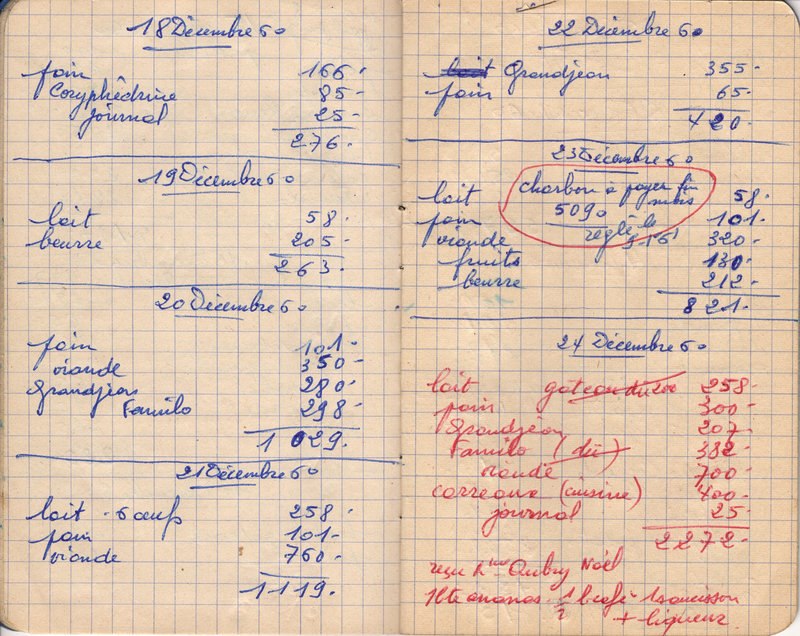 18 Décembre 60
pain 166.
Coryphédrine 85-
journal 25-
276.
19 Décembre 60
lait 58.
beurre 205-
263.
20 Décembre 60
pain 101-
viande 350-
Grandjean 280-
Familo 298-
1 029.
21 Décembre 60
lait - 6 œufs 258-
pain 101-
viande 760-
1119.
22 Décembre 60
Grandjean 355-
pain 65-
420-
23 Décembre 60
charbon à payer fin
mois
5090
réglé le
9-1-61
lait 58.
pain 101-
viande 320-
fruits 130-
beurre 212-
821-
24 Décembre 60
lait gateau du 200 258-
pain 300-
Grandjean 207-
Familo (dû) 382-
viande 700-
carreaux (cuisine) 400-
journal 25-
2272-
reçu Mme Aubry Noël
1 bte ananas - 1/2 l café - 1 saucisson
+ liqueur